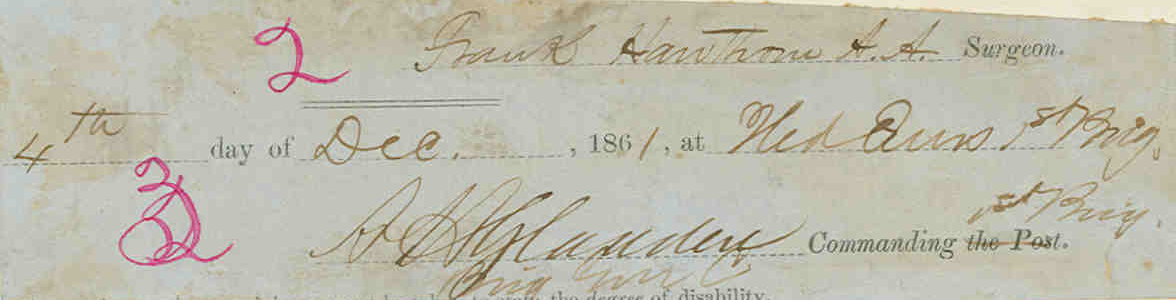 2
Frank Hawthorn A.A. Surgeon.
4th day of Dec. , 1861, at Hed Qurs 1st Brig.
1st Brig.
A H Gladden Commanding the Post.
32
Brig Genl C
the degree of disability.